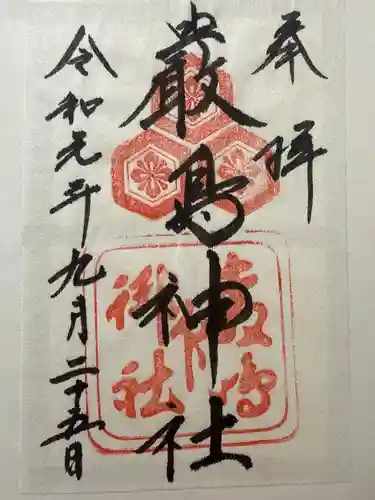 奉拝
嚴島神社
令和元年九月二十五日
嚴島神社